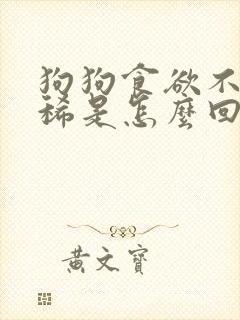 狗狗食欲不
稀是怎麼回
黃文寶